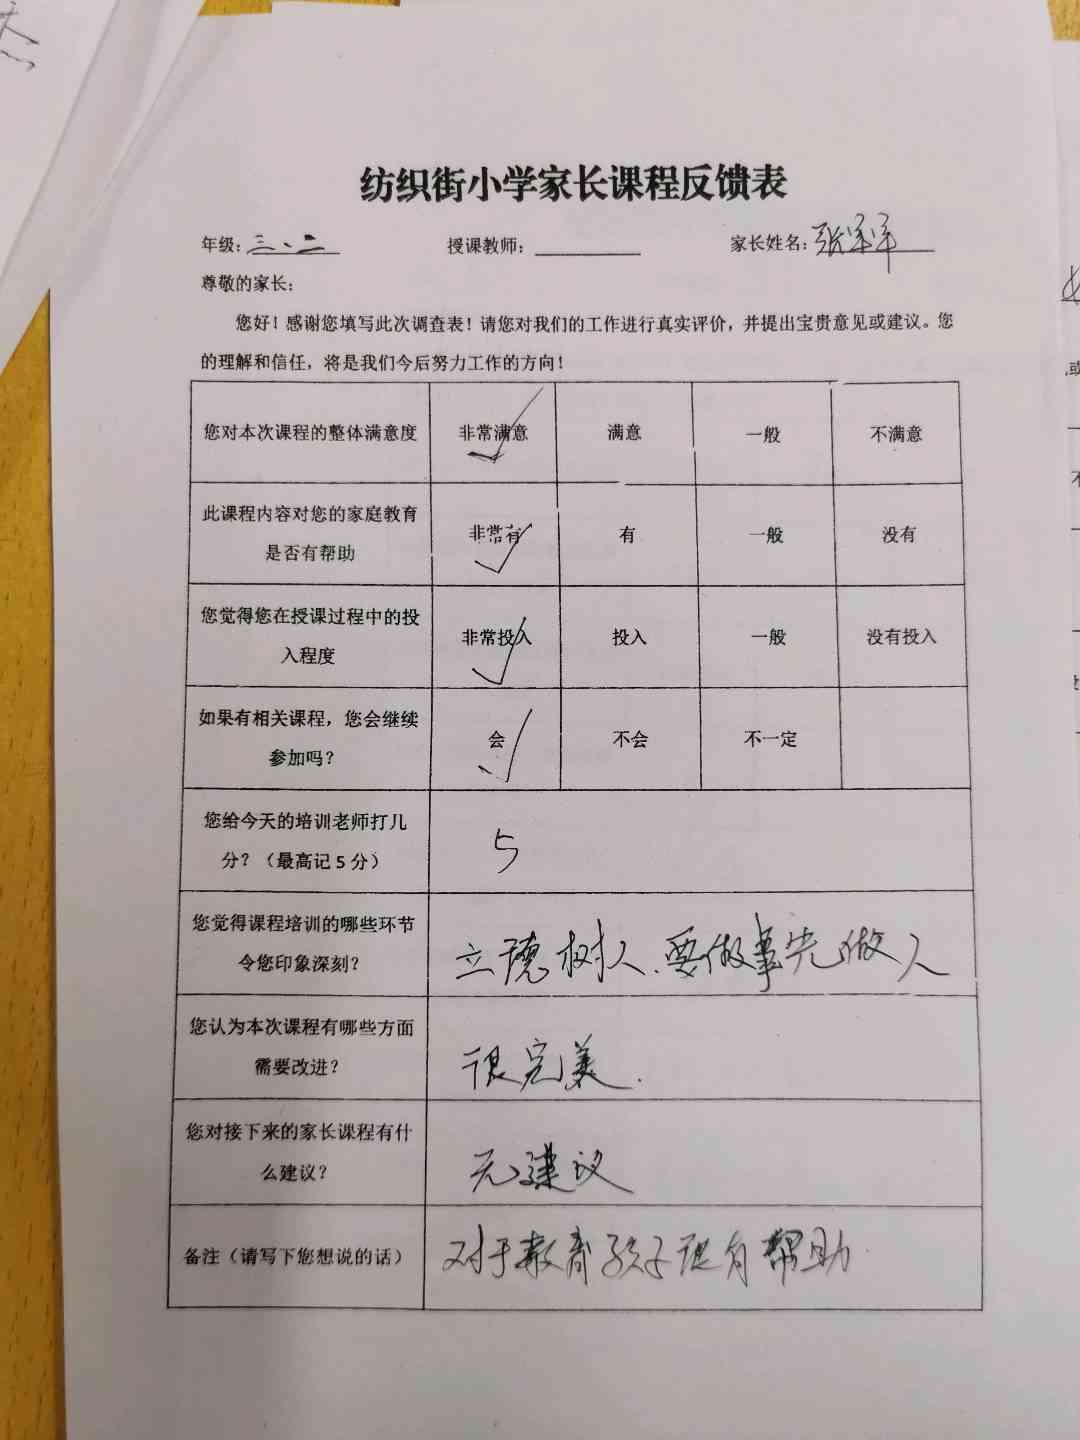 纺织街小学家长课程反馈表
年级：三、二 授课教师： 家长姓名：张
尊敬的家长：
您好！感谢您填写此次调查表！请您对我们的工作进行真实评价，并提出宝贵意见或建议。您
的理解和信任，将是我们今后努力工作的方向！
您对本次课程的整体满意度 非常满意 满意 一般 不满意
此课程内容对您的家庭教育
是否有帮助
非常有 有 一般 没有
您觉得您在授课过程中的投
入程度
非常投入 投入 一般 没有投入
如果有相关课程，您会继续
参加吗？
会 不会 不一定
您给今天的培训老师打几
分？（最高记5分）
5
您觉得课程培训的哪些环节
令您印象深刻？
立德树人、要做事先做人
您认为本次课程有哪些方面
需要改进？
很完美.
您对接下来的家长课程有什
么建议？
无建议
备注（请写下您想说的话）
对于教育孩子很有帮助